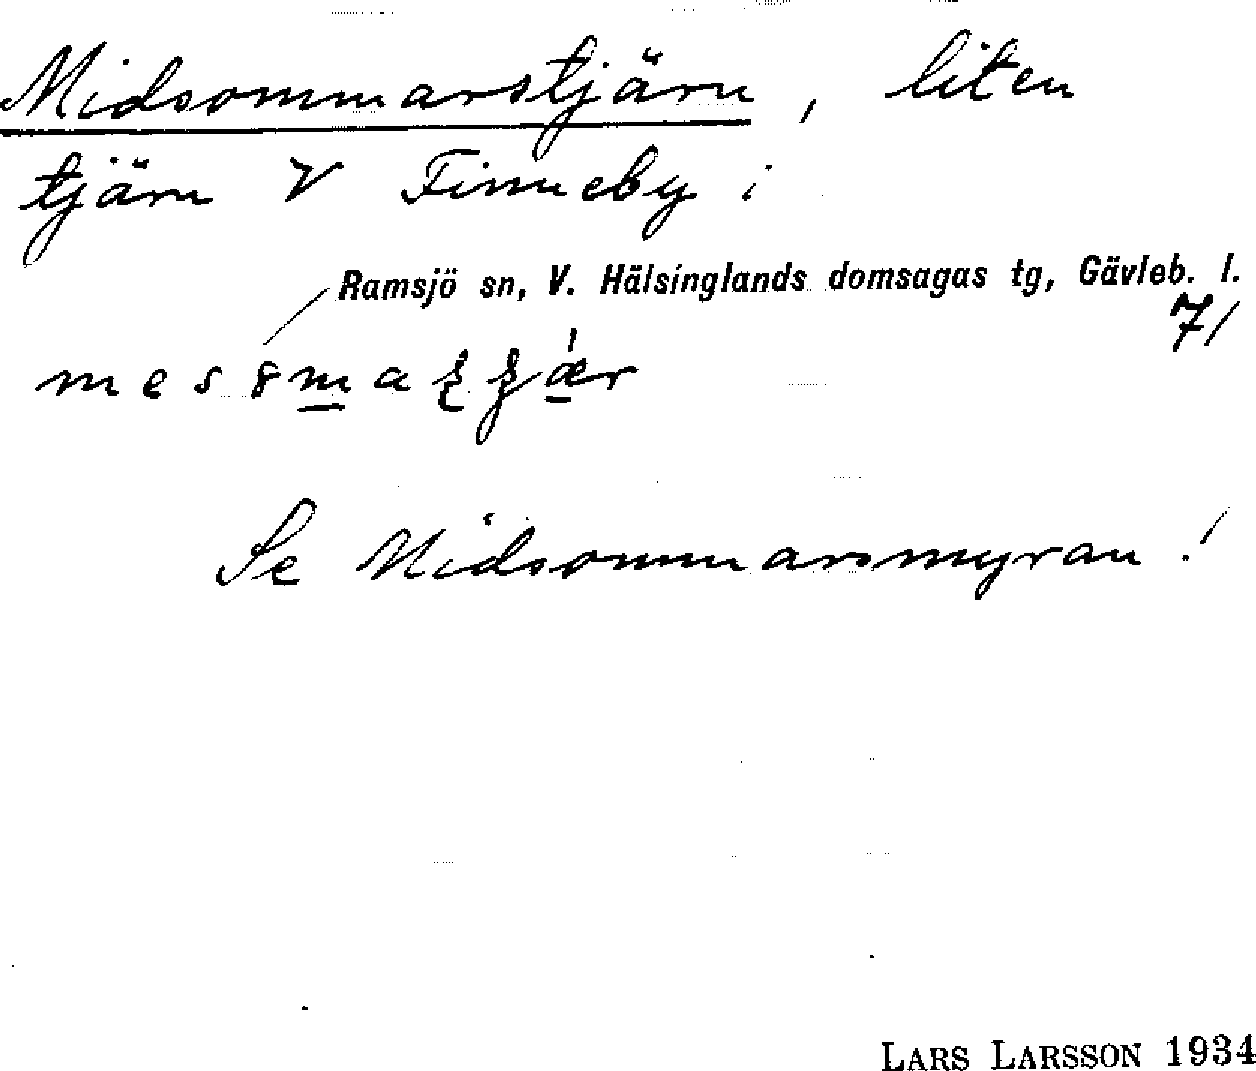 Midsommarstjärn, liten
tjärn V Finneby i
Ramsjö sn, V. Hälsinglands domsagas tg, Gävleb. l.
71
Se Midsommarsmyran!
LARS LARSSON 1934